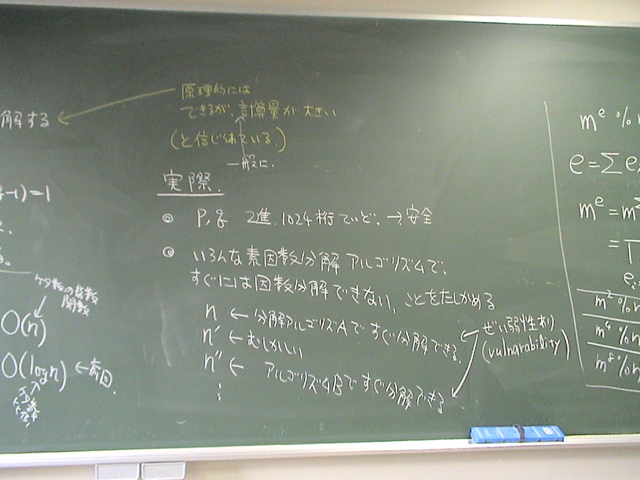 解する
原理的には
できるが、計算量が大きい
(と信じられている。)
一般に.
-1)=1
ケタ数の指数関数
O(n)
O(logn) ←前回.
実際.
◎ P, q 2進, 1024桁ていど. → 安全
◎ いろんな素因数分解アルゴリズムで,
すぐには因数分解できない, ことをたしかめる
n ← 分解アルゴリズムAですぐ分解できる.
n' ← むずかしい
n'' ← アルゴリズムBですぐ分解できる
⋮
ぜい弱性あり
(vulnarability)
m^e % n
e = Σ e
m^e = m^2
= Π
m^2 % n
m^4 % n
m^8 % n